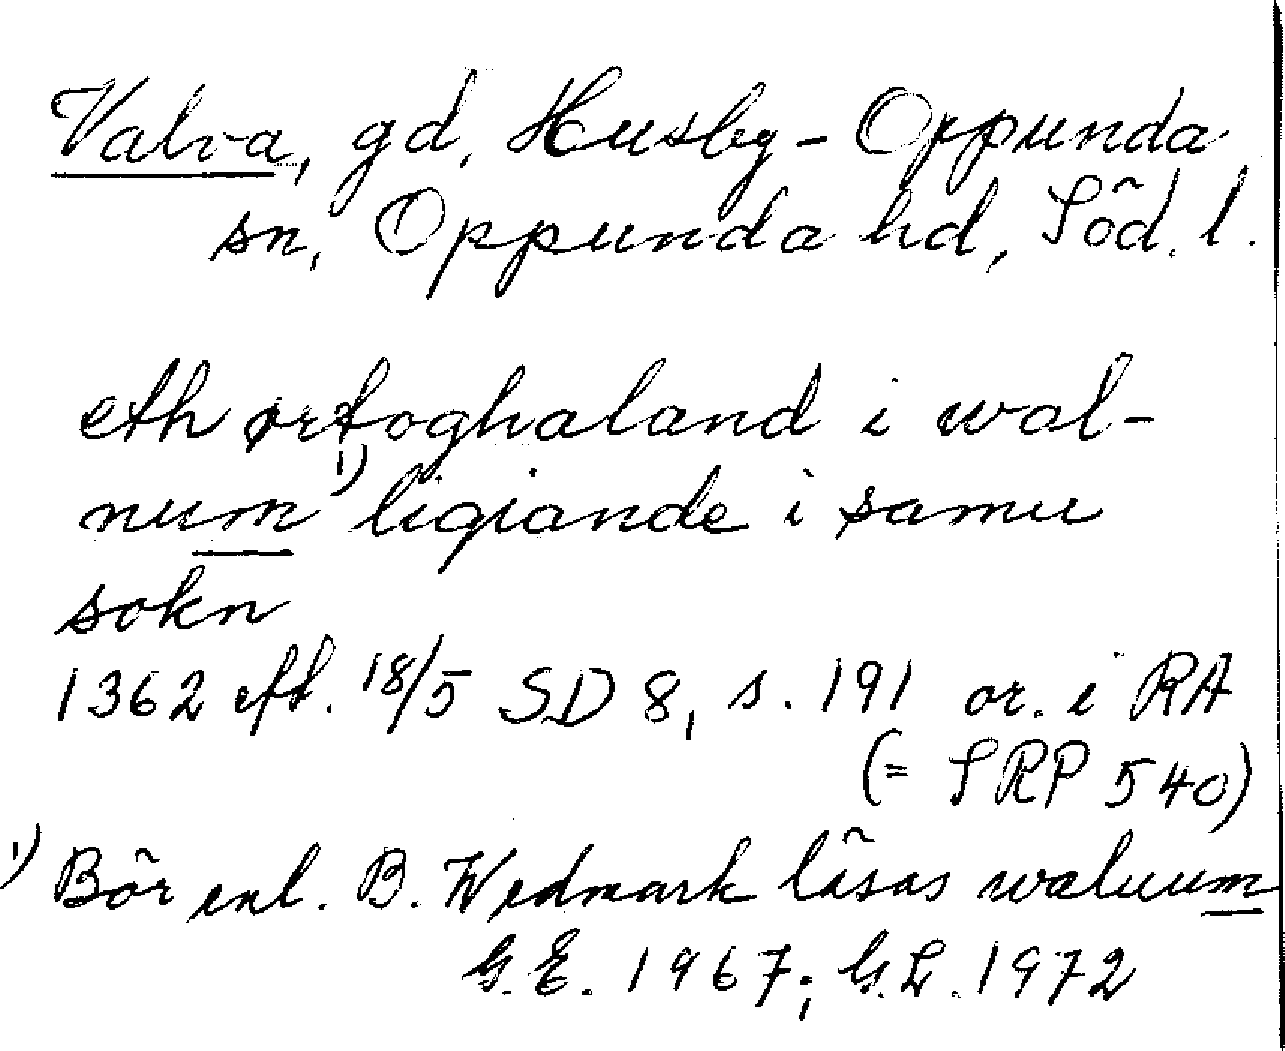 Valva, gd, Husby-Oppunda
sn, Oppunda hd, Söd. l.
eth ørtoghaland i wal-
num ¹⁾ ligiande i samu
sokn
1362 eft. 18/5 SD 8, s. 191 or. i RA
(= SRP 540)
¹⁾ Bör enl. B. Wedmark läsas waluum
G.E. 1967; G.L. 1972